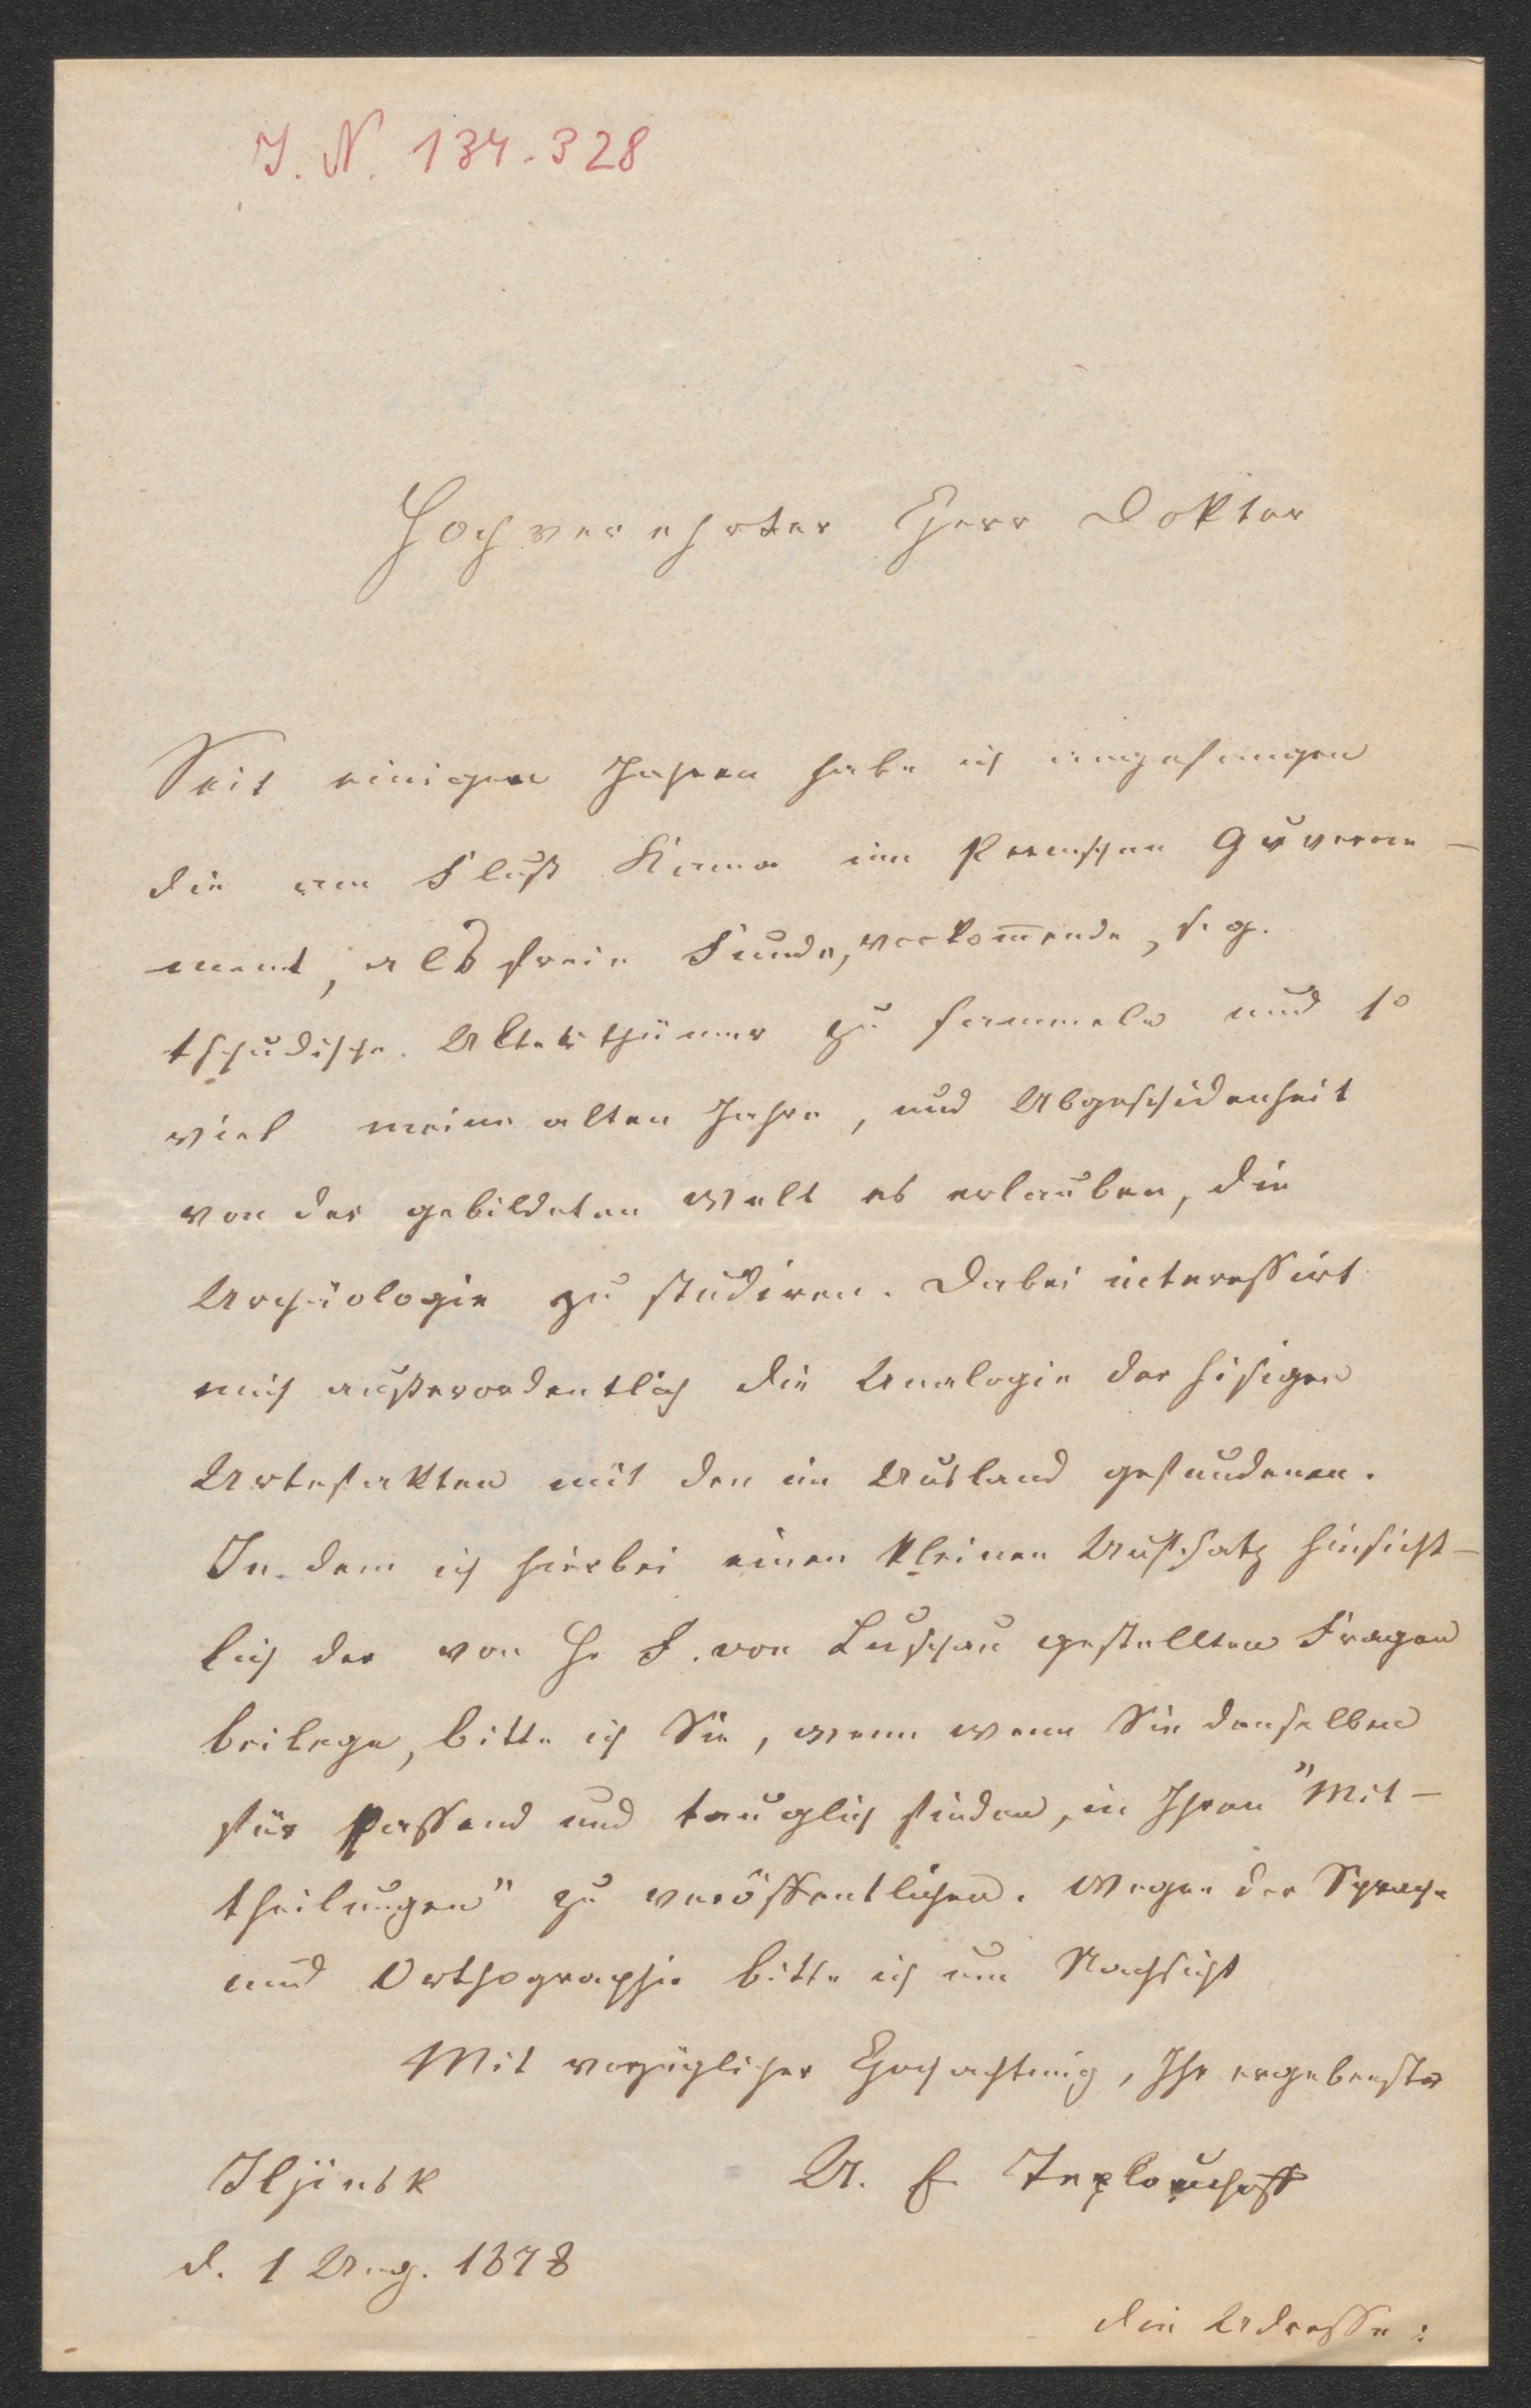 J. N. 134.328
Hochverehrter Herr Doktor
Seit einigen Jahren habe ich angefangen
die am Fluß Kama im Permschen Guverne-
ment, als freie Funde, vorkom̅ende, s. g.
tschudische Alterthümer zu sammeln und so
viel meine alten Jahre, und Abgeschidenheit
von der gebildeten Welt es erlauben, die
Archäologie zu studiren. Dabei interessirt
mich außerordentlich die Analogie der hisigen
Artefakten mit den im Ausland gefundenen.
In dem ich hierbei einen kleinen Aufsatz hinsicht-
lich der von H. F. von Luschan gestellten Fragen
beilege, bitte ich Sie, wenn wenn Sie denselben
für passend und tauglich finden, in Ihren "Mit-
theilungen" zu veröffentlichen. Wegen der Sprache
und Orthographie bitte ich um Nachsicht
Mit vorzüglicher Hochachtung, Ihr ergebenster
Iljinsk
A. E. Teplouchoff
d. 1 Aug. 1878
Die Adresse: